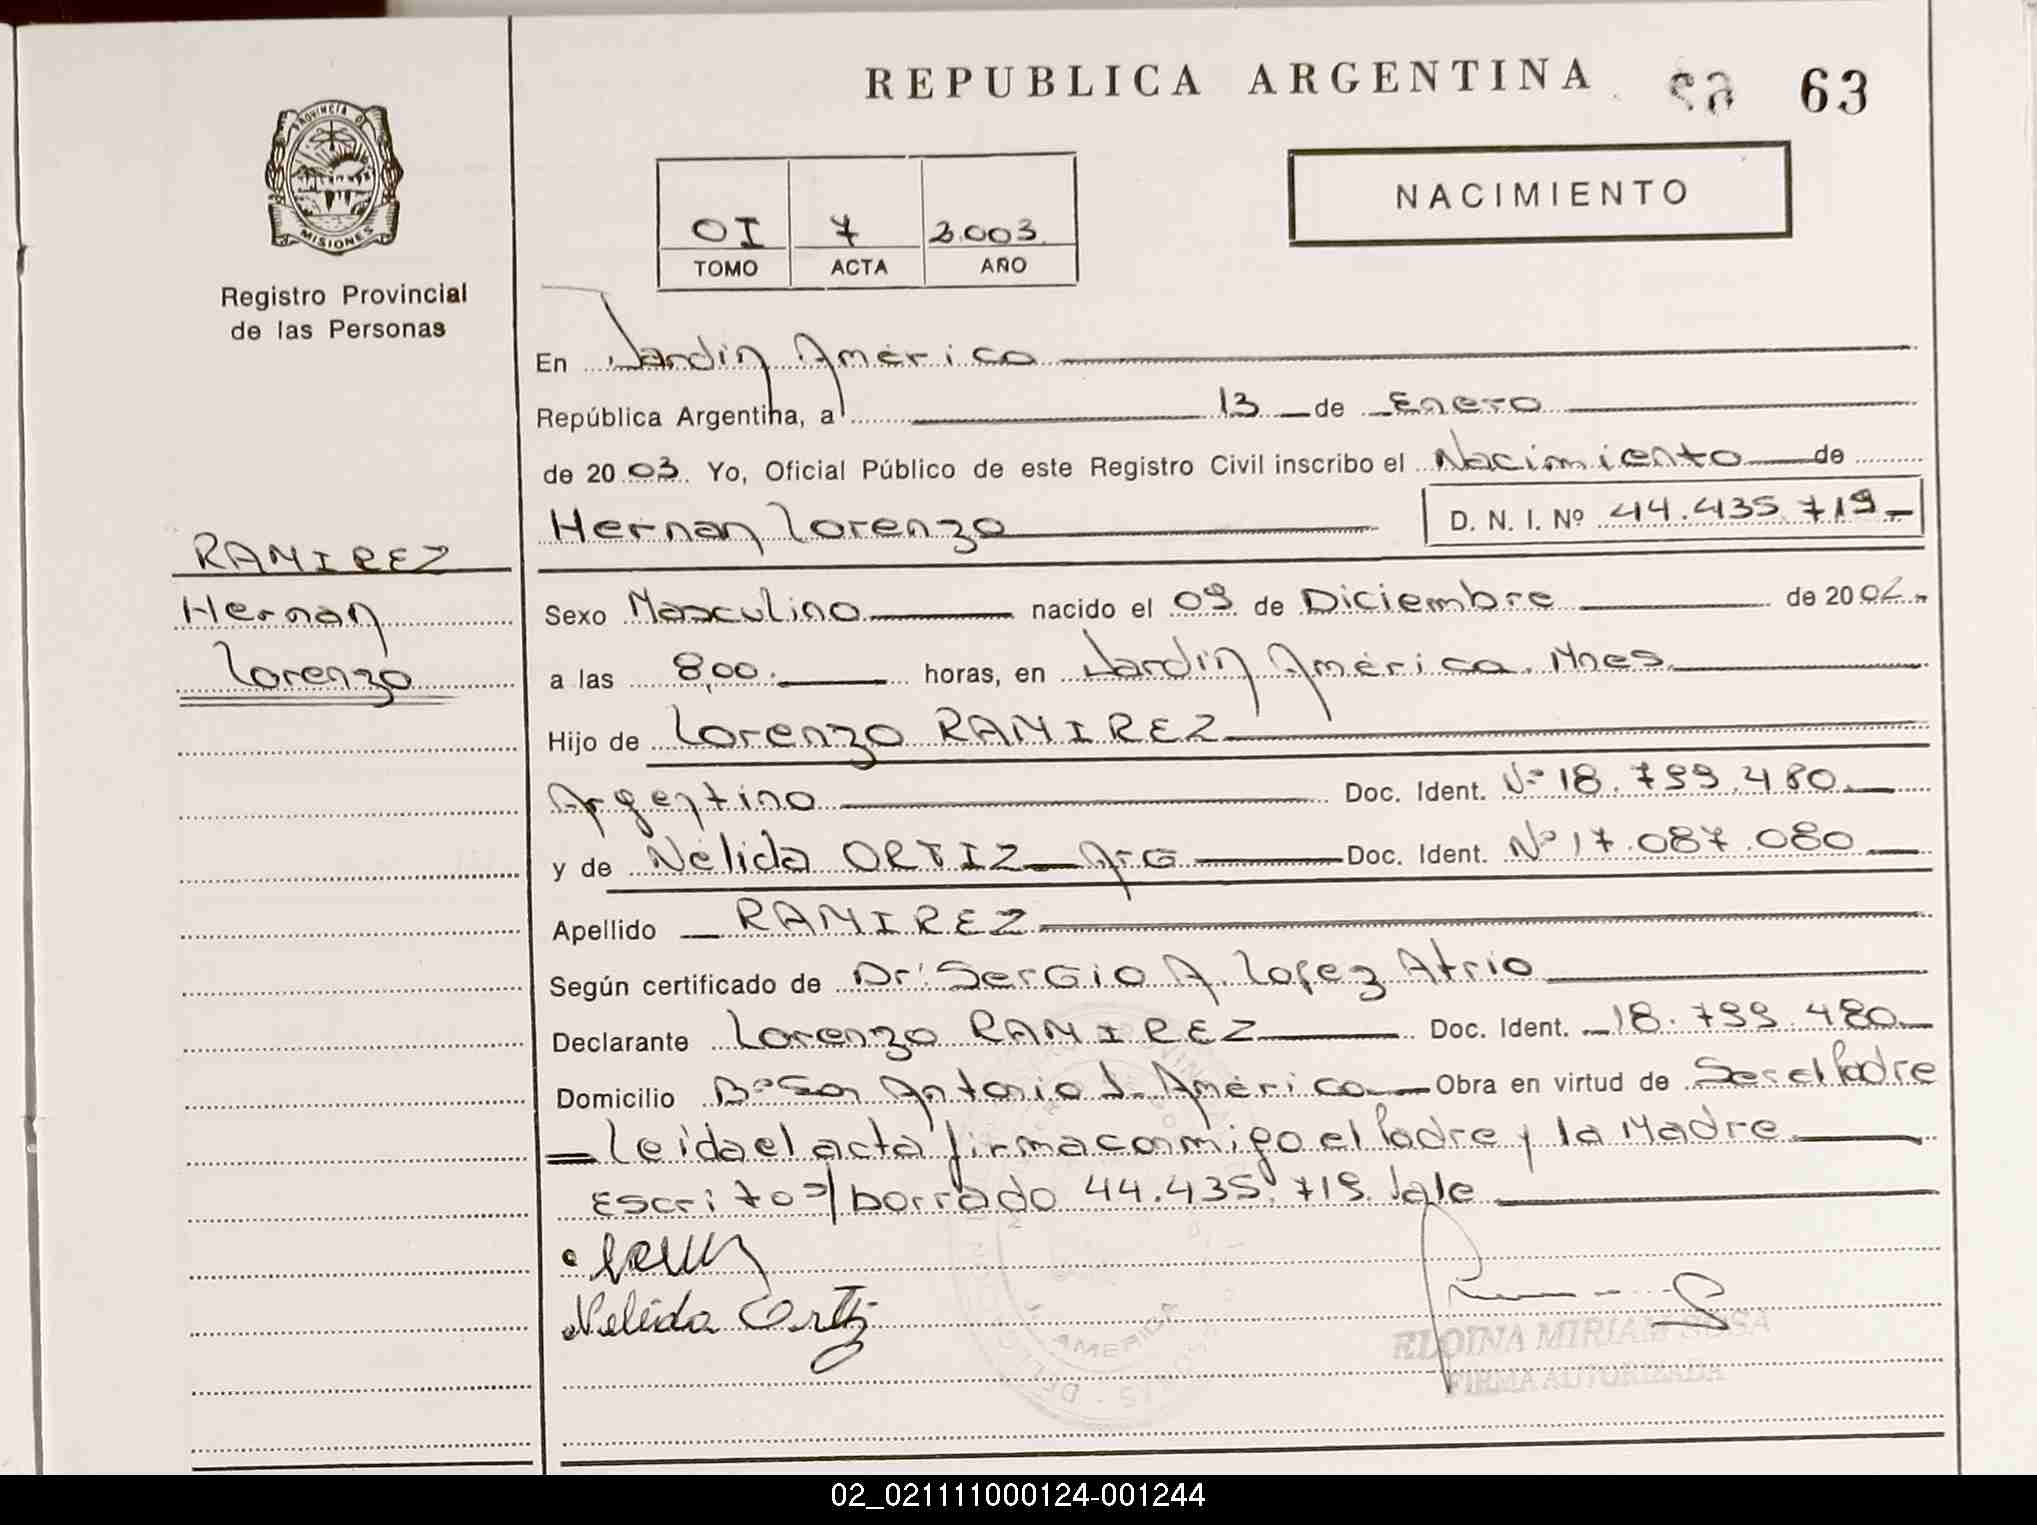 REPUBLICA ARGENTINA 63
PROVINCIA D
MISIONES
Registro Provincial
de las Personas
NACIMIENTO
OI 7 2.003
TOMO ACTA AÑO
En Jardín América
República Argentina, a 13 de Enero
de 20 03 Yo, Oficial Público de este Registro Civil inscribo el Nacimiento de
Hernan Lorenzo D. N. I. Nº 44.435.719
RAMIREZ
Hernan
Lorenzo
Sexo Masculino nacido el 09 de Diciembre de 20 02
a las 8,00 horas, en Jardín América. Mnes
Hijo de Lorenzo RAMIREZ
Argentino Doc. Ident. Nº 18.799.480
y de Nélida ORTIZ ArG Doc. Ident. Nº 17.087.080
Apellido RAMIREZ
Según certificado de Dr: Sergio A. Lopez Atrio
Declarante Lorenzo RAMIREZ Doc. Ident. 18.799.480
Domicilio Bº San Antonio J. América Obra en virtud de Ser el Padre
Leida el acta firma conmigo el Padre y la Madre
Escrito s/borrado 44.435.719. Vale
Nelida Ortiz
ELOINA MIRIAM SOSA
FIRMA AUTORIZADA
AMERICA
02_021111000124-001244